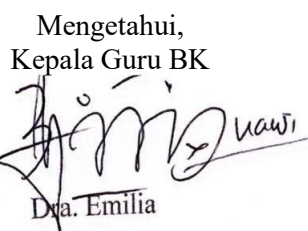 Mengetahui,
Kepala Guru BK
Dra. Emilia